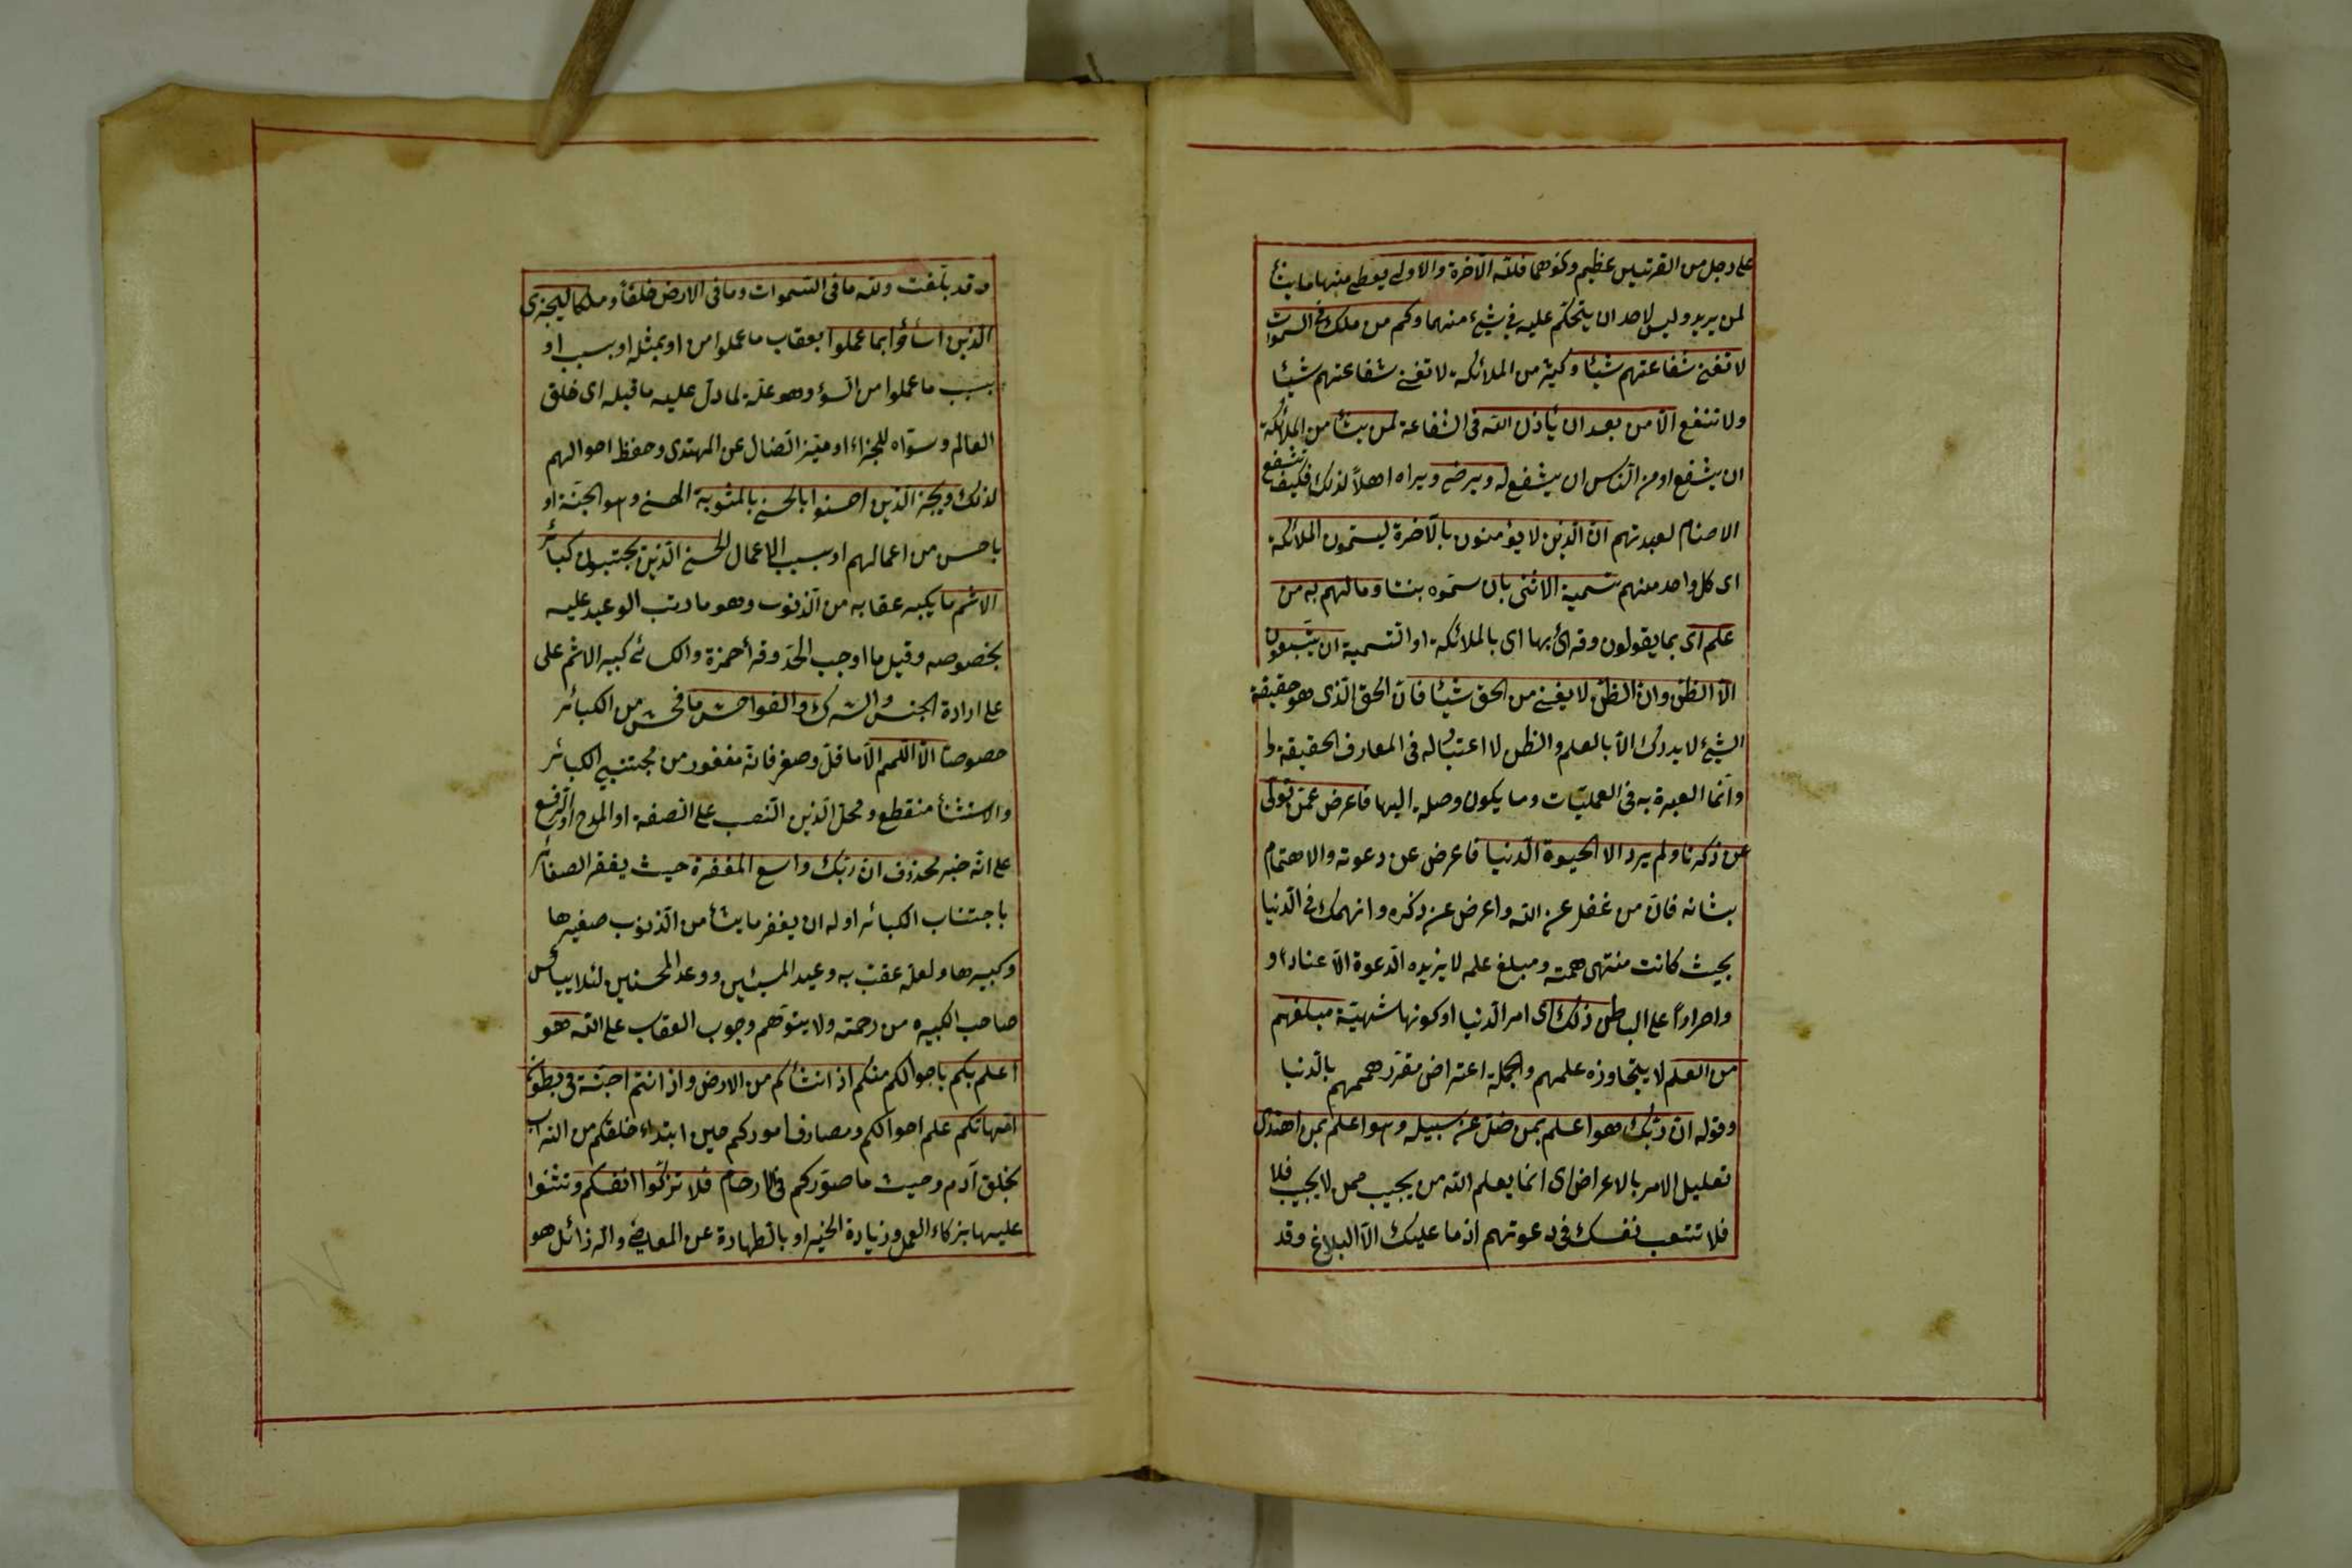 على رجل من القريتين عظيم ونحوهما فلله الآخرة والاولى يعطي منهما ما يشأ
لمن يريد وليس لاحد ان يتحكم عليه في شيء منهما وكم من ملك في السموات
لا تغني شفاعتهم شيئا وكثير من الملائكة لا تغني شفاعتهم شيئا
ولا تنفع الا من بعد ان يأذن الله فى الشفاعة لمن يشأ من الملائكة
ان يشفع او من الناس ان يشفع له ويرضى ويراه اهلاً لذلك فكيف تشفع
الاصنام لعبدتهم ان الذين لا يؤمنون بالآخرة ليسمون الملائكة
اى كل واحد منهم تسمية الانثى بان سموه بنتا وما لهم به من
علم اى بما يقولون وقرئ بها اى بالملائكة او التسمية ان يتبعون
الا الظن وان الظن لا يغني من الحق شيئا فان الحق الذى هو حقيقة
الشيء لا يدرك الا بالعلم والظن لا اعتبار له فى المعارف الحقيقة ط
وانما العبرة به فى العمليات وما يكون وصلة اليها فاعرض عمن تولى
عن ذكرنا ولم يرد الا الحيوة الدنيا فاعرض عن دعوته والاهتمام
بشانه فان من غفل عن الله واعرض عن ذكره وانهمك في الدنيا
بحيث كانت منتهى همته ومبلغ علمه لا يزيده الدعوة الا عنادا و
واصراراً على الباطل ذلك اى امر الدنيا او كونها شهيّة مبلغهم
من العلم لا يتجاوزه علمهم والجملة اعتراض مقرر هممهم بالدنيا
وقوله ان ربك هو اعلم بمن ضل عن سبيله وهو اعلم بمن اهتدى
تعليل الامر بالاعراض اى انما يعلم الله من يجيب ممن لا يجيب فلا
فلا تتعب نفسك فى دعوتهم اذ ما عليك الا البلاغ وقد
وقد بلغت ولله ما فى السموات وما فى الارض خلقاً وملكا ليجزى
الذين اساؤا بما عملوا بعقاب ما عملوا من او بمثله او بسبب او
بسبب ما عملوا من السوء وهو علة لما دل عليه ما قبله اى خلق
العالم وسواه للجزاء او ميّز الضال عن المهتدى وحفظ احوالهم
لذلك ويجزى الذين احسنوا بالحسنى بالمثوبة الحسنى وهو الجنة او
باحسن من اعمالهم او بسبب الاعمال الحسنى الذين يجتنبون كبائر
الاثم ما يكبر عقابه من الذنوب وهو ما رتب الوعيد عليه
بخصوصه وقيل ما اوجب الحد وقرأ حمزة والكسائى كبير الاثم على
على ارادة الجنس والشرك والفواحش ما فحش من الكبائر
خصوصا الا اللمم الا ما قل وصغر فانه مغفور من مجتنبي الكبائر
والاستثنأ منقطع ومحل الذين النصب على الصفة او المدح او الرفع
على انه خبر محذوف ان ربك واسع المغفرة حيث يغفر الصغائر
باجتناب الكبائر او له ان يغفر ما يشأ من الذنوب صغيرها
وكبيرها ولعله عقب به وعيد المسيئين ووعد المحسنين لئلا ييأس
صاحب الكبيره من رحمته ولا يتوهم وجوب العقاب على الله هو
اعلم بكم باحوالكم منكم اذ انشأكم من الارض واذ انتم اجنة فى بطون
امهاتكم علم احوالكم ومصارف اموركم حين ابتداء خلقكم من التراب
بخلق آدم وحيث ما صوّركم فى الارحام فلا تزكّوا انفسكم وتثنوا
عليها بزكاء العمل وزيادة الخير او بالطهارة عن المعاصي والرذائل هو